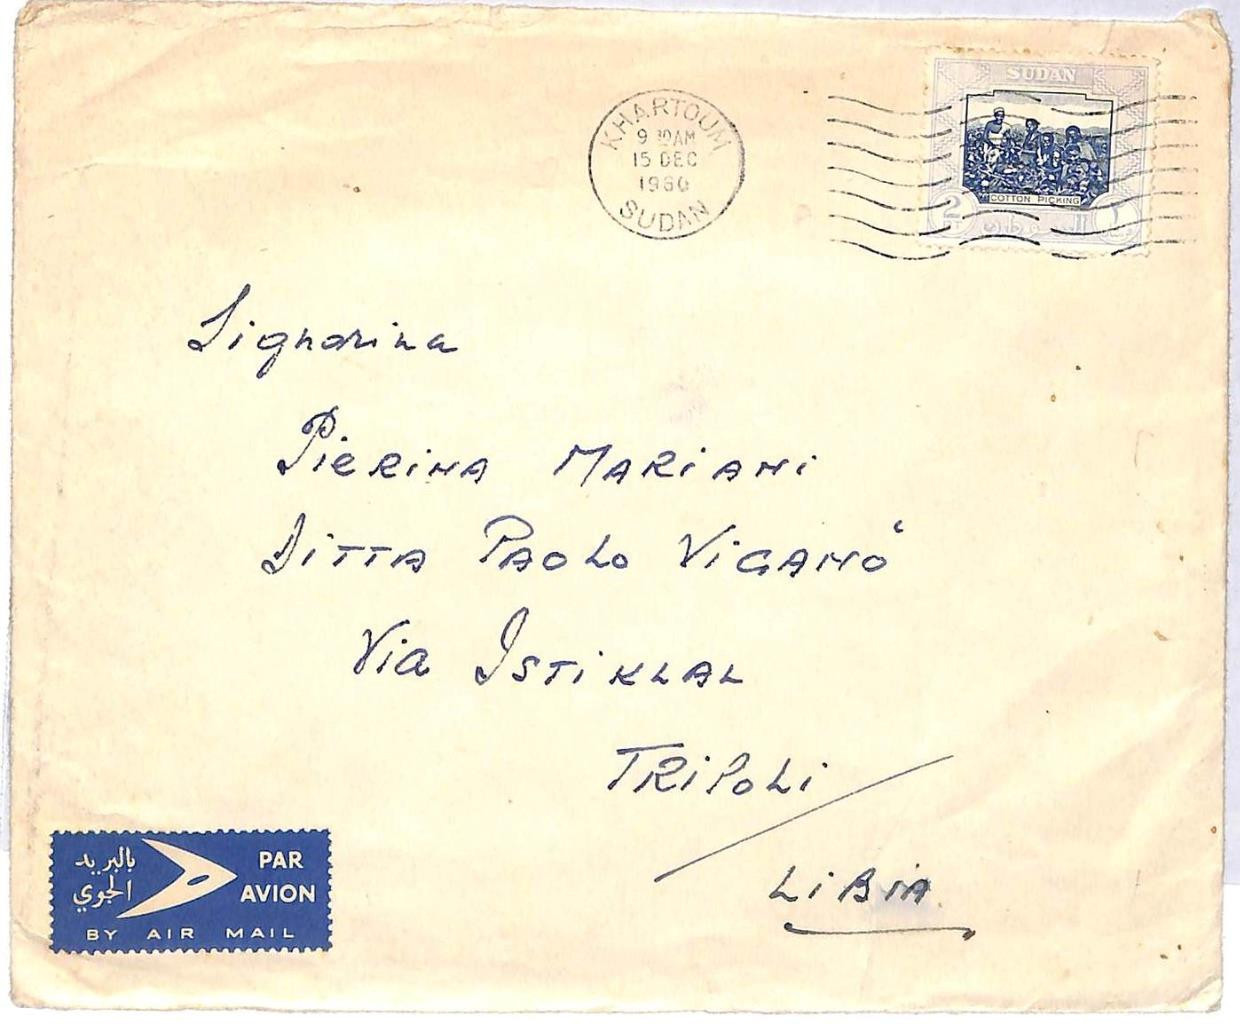 KHARTOUM
9 30AM
15 DEC
1960
SUDAN
SUDAN
COTTON PICKING
2
PT
السودان
٢
Signorina
Pierina Mariani
Ditta Paolo Viganò
Via Istiklal
Tripoli
Libia
بالبريد
الجوي
PAR
AVION
BY AIR MAIL